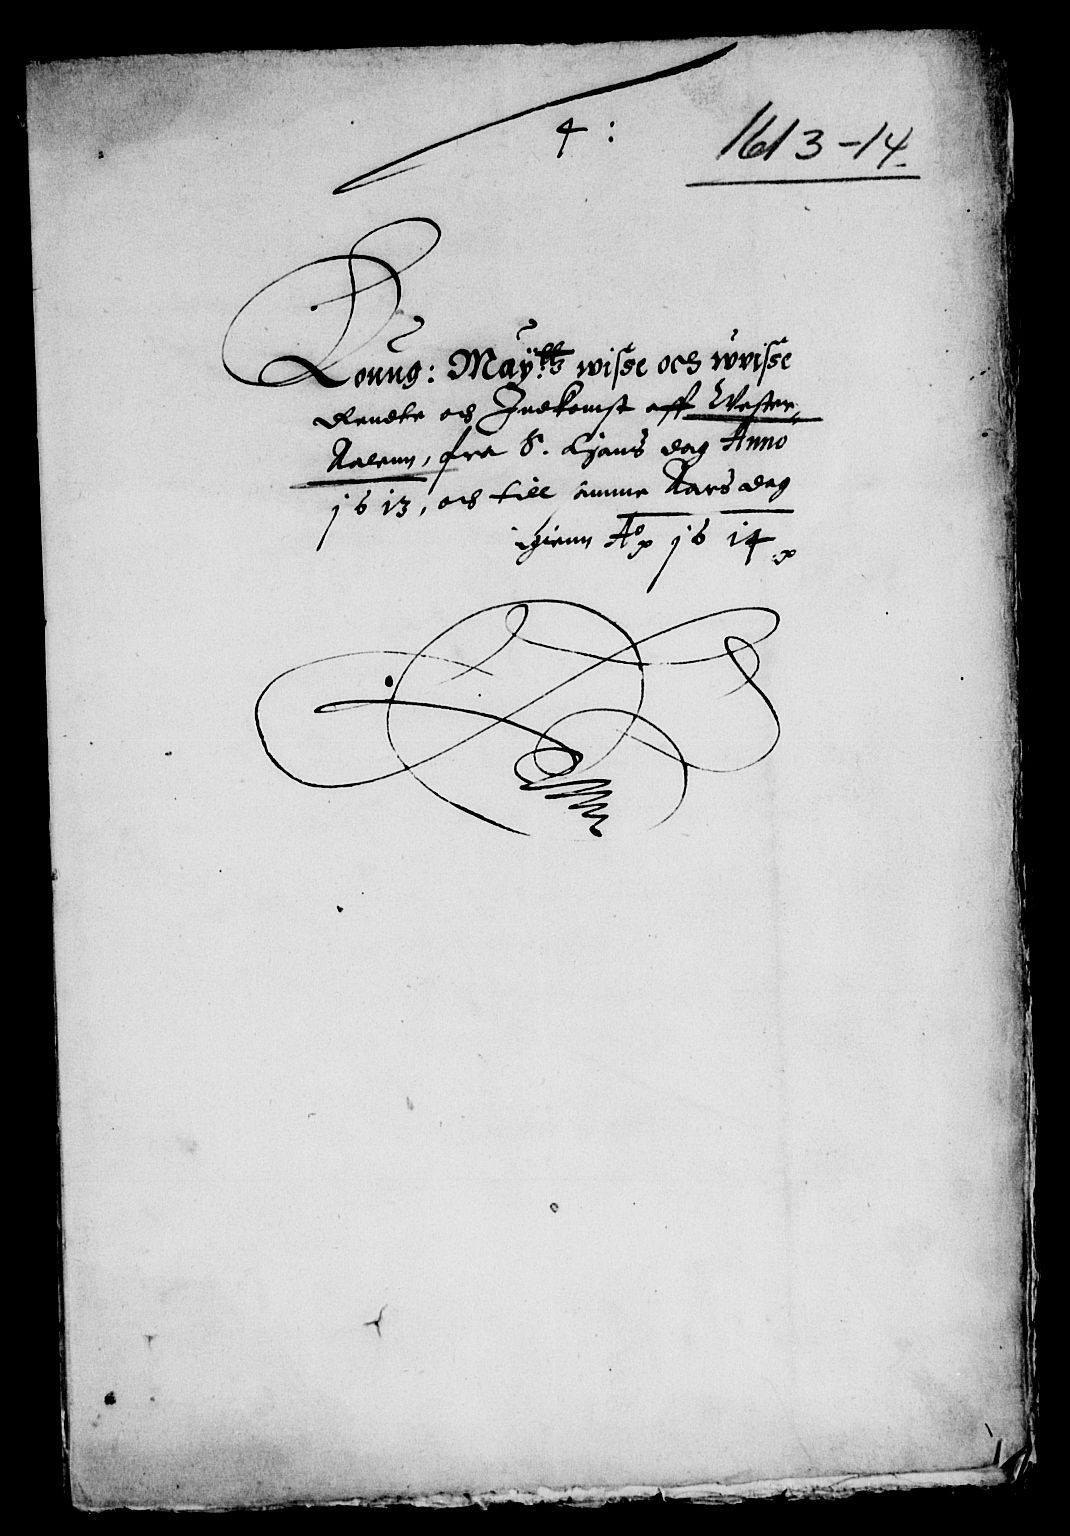 4 :
1613-14
Konng: Maytts wisse och uwisse
Rendte och Indkomst aff Wester,
Aalenn, fra S. Hans dag Anno
1613, och till samme Aars dag
igienn Ao 1614
1